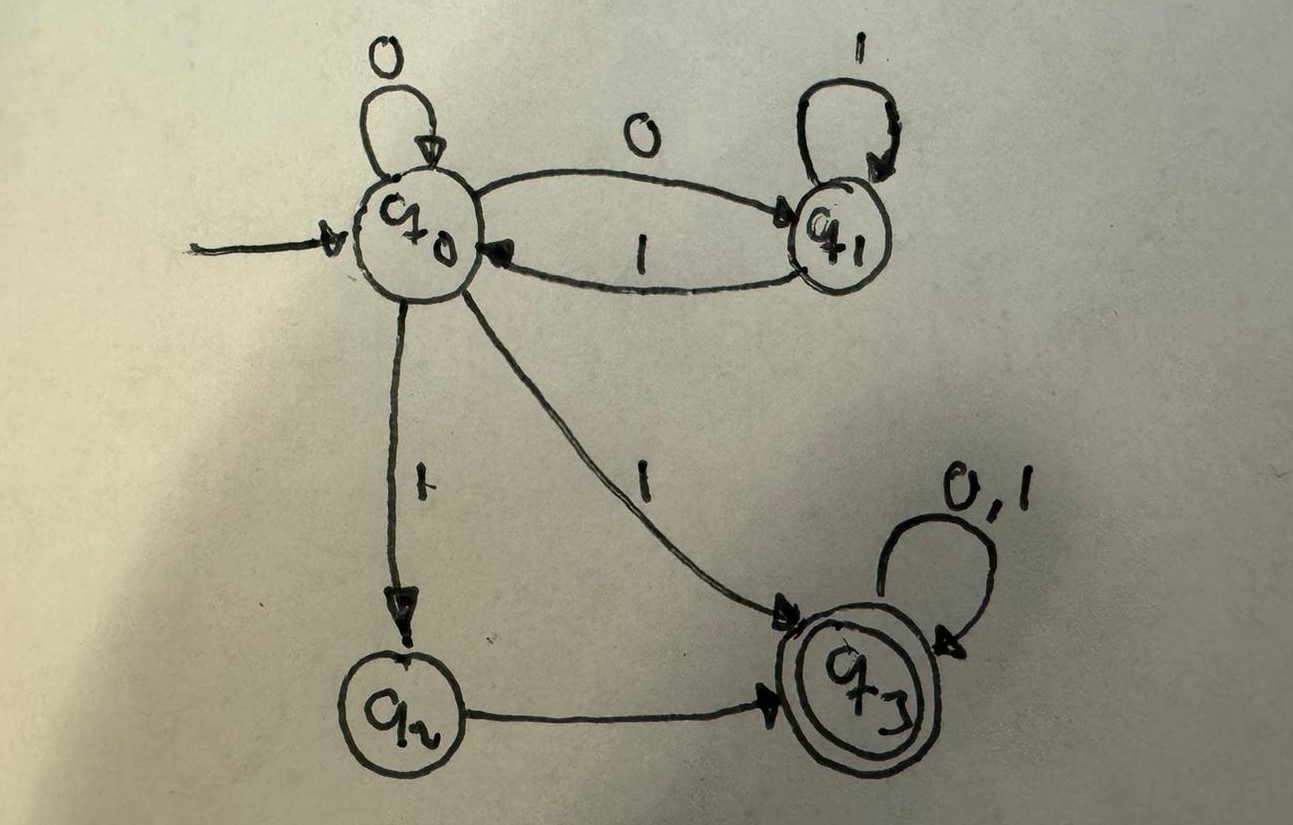 0
1
0
q0
q1
1
1
1
0,1
q3
q2